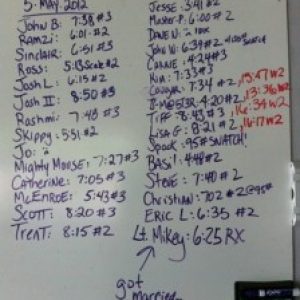 5. MAY 2012
JOHN B: 7:38 #3
RAMZi: 6:01 #2
Sinclair: 6:51 #3
Ross: 5:13 Scale #2
Josh L: 6:15 #2
Josh II: 8:50 #3
Rashmi: 7:48 #3
Skippy: 5:51 #2
Jo:
Mighty Moose: 7:27 #3
Catherine: 7:05 #3
McENROE: 5:43 #3
SCOTT: 8:20 #3
TRENT: 8:15 #2
JESSE: 3:41 #2
6:00 #2
DAVE N:
John W: 6:39 #2
CARRIE: 4:24 #3
Nia: 7:33 #2
COUGAR: 7:34 #2
4:20 #2
TIFF: 8:43 #3
LISA G: 8:21 #2
Spock: 95# SNATCH!
BASI: 4:48 #2
STEVE: 7:40 #2
Christian: 7:02 #2 @95#
ERIC L: 6:35 #2
Lt. Mikey: 6:25 RX
got
married